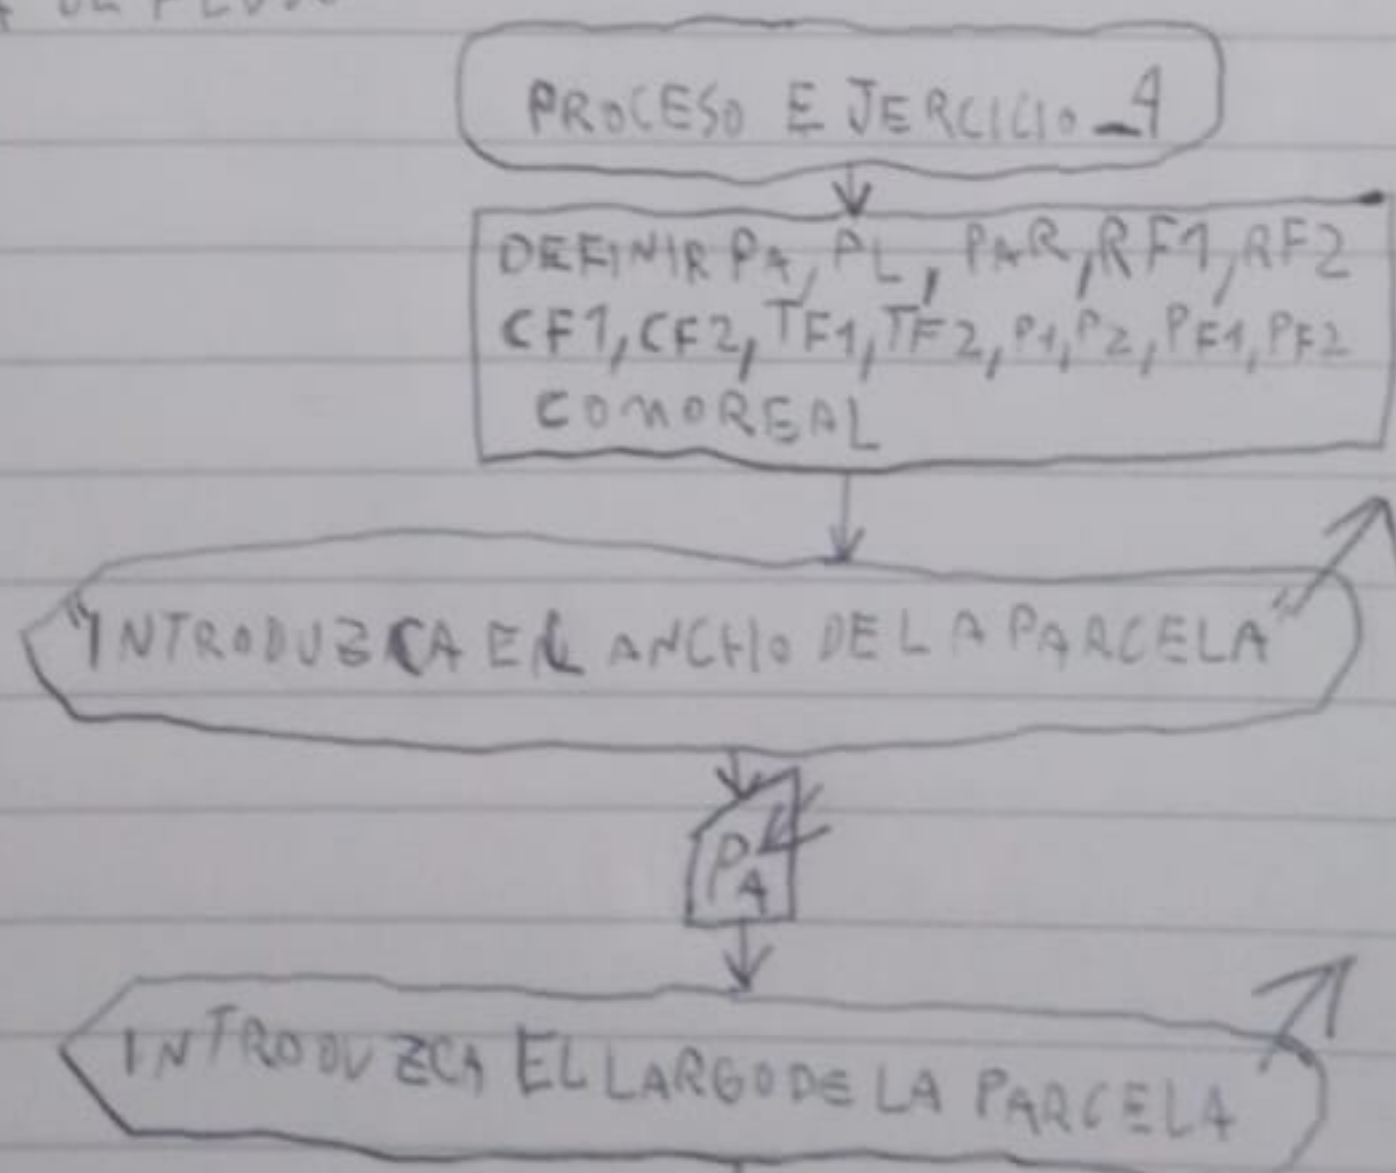 DE FLUJO
PROCESO EJERCICIO_4
DEFINIR PA, PL, PAR, RF1, RF2
CF1, CF2, TF1, TF2, P1, P2, PF1, PF2
COMO REAL
"INTRODUZCA EL ANCHO DE LA PARCELA"
PA
INTRODUZCA EL LARGO DE LA PARCELA